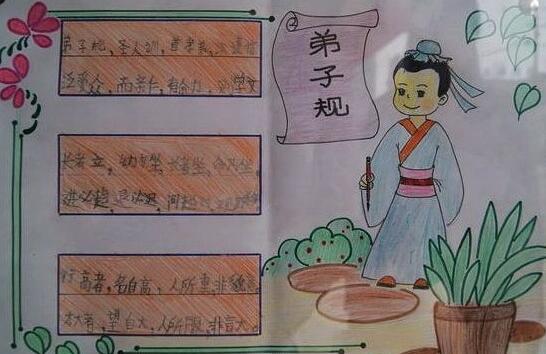 弟子规
弟子规,圣人训,首孝弟,次谨信
泛爱众,而亲仁,有余力,则学文
长者立,幼勿坐,长者坐,命乃坐,
进必趋,退必迟,问起对,
行高者,名自高,人所重,非貌高,
才大者,望自大,人所服,非言大。